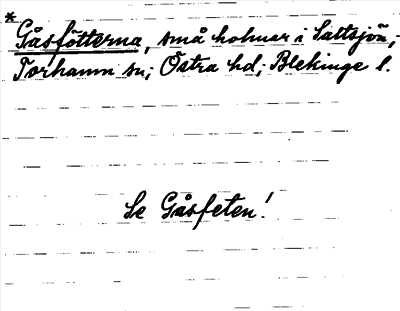 * Gåsfötterna, små holmar i Saltsjön,
Torhamn sn; Östra hd; Blekinge l.
Se Gåsfeten!